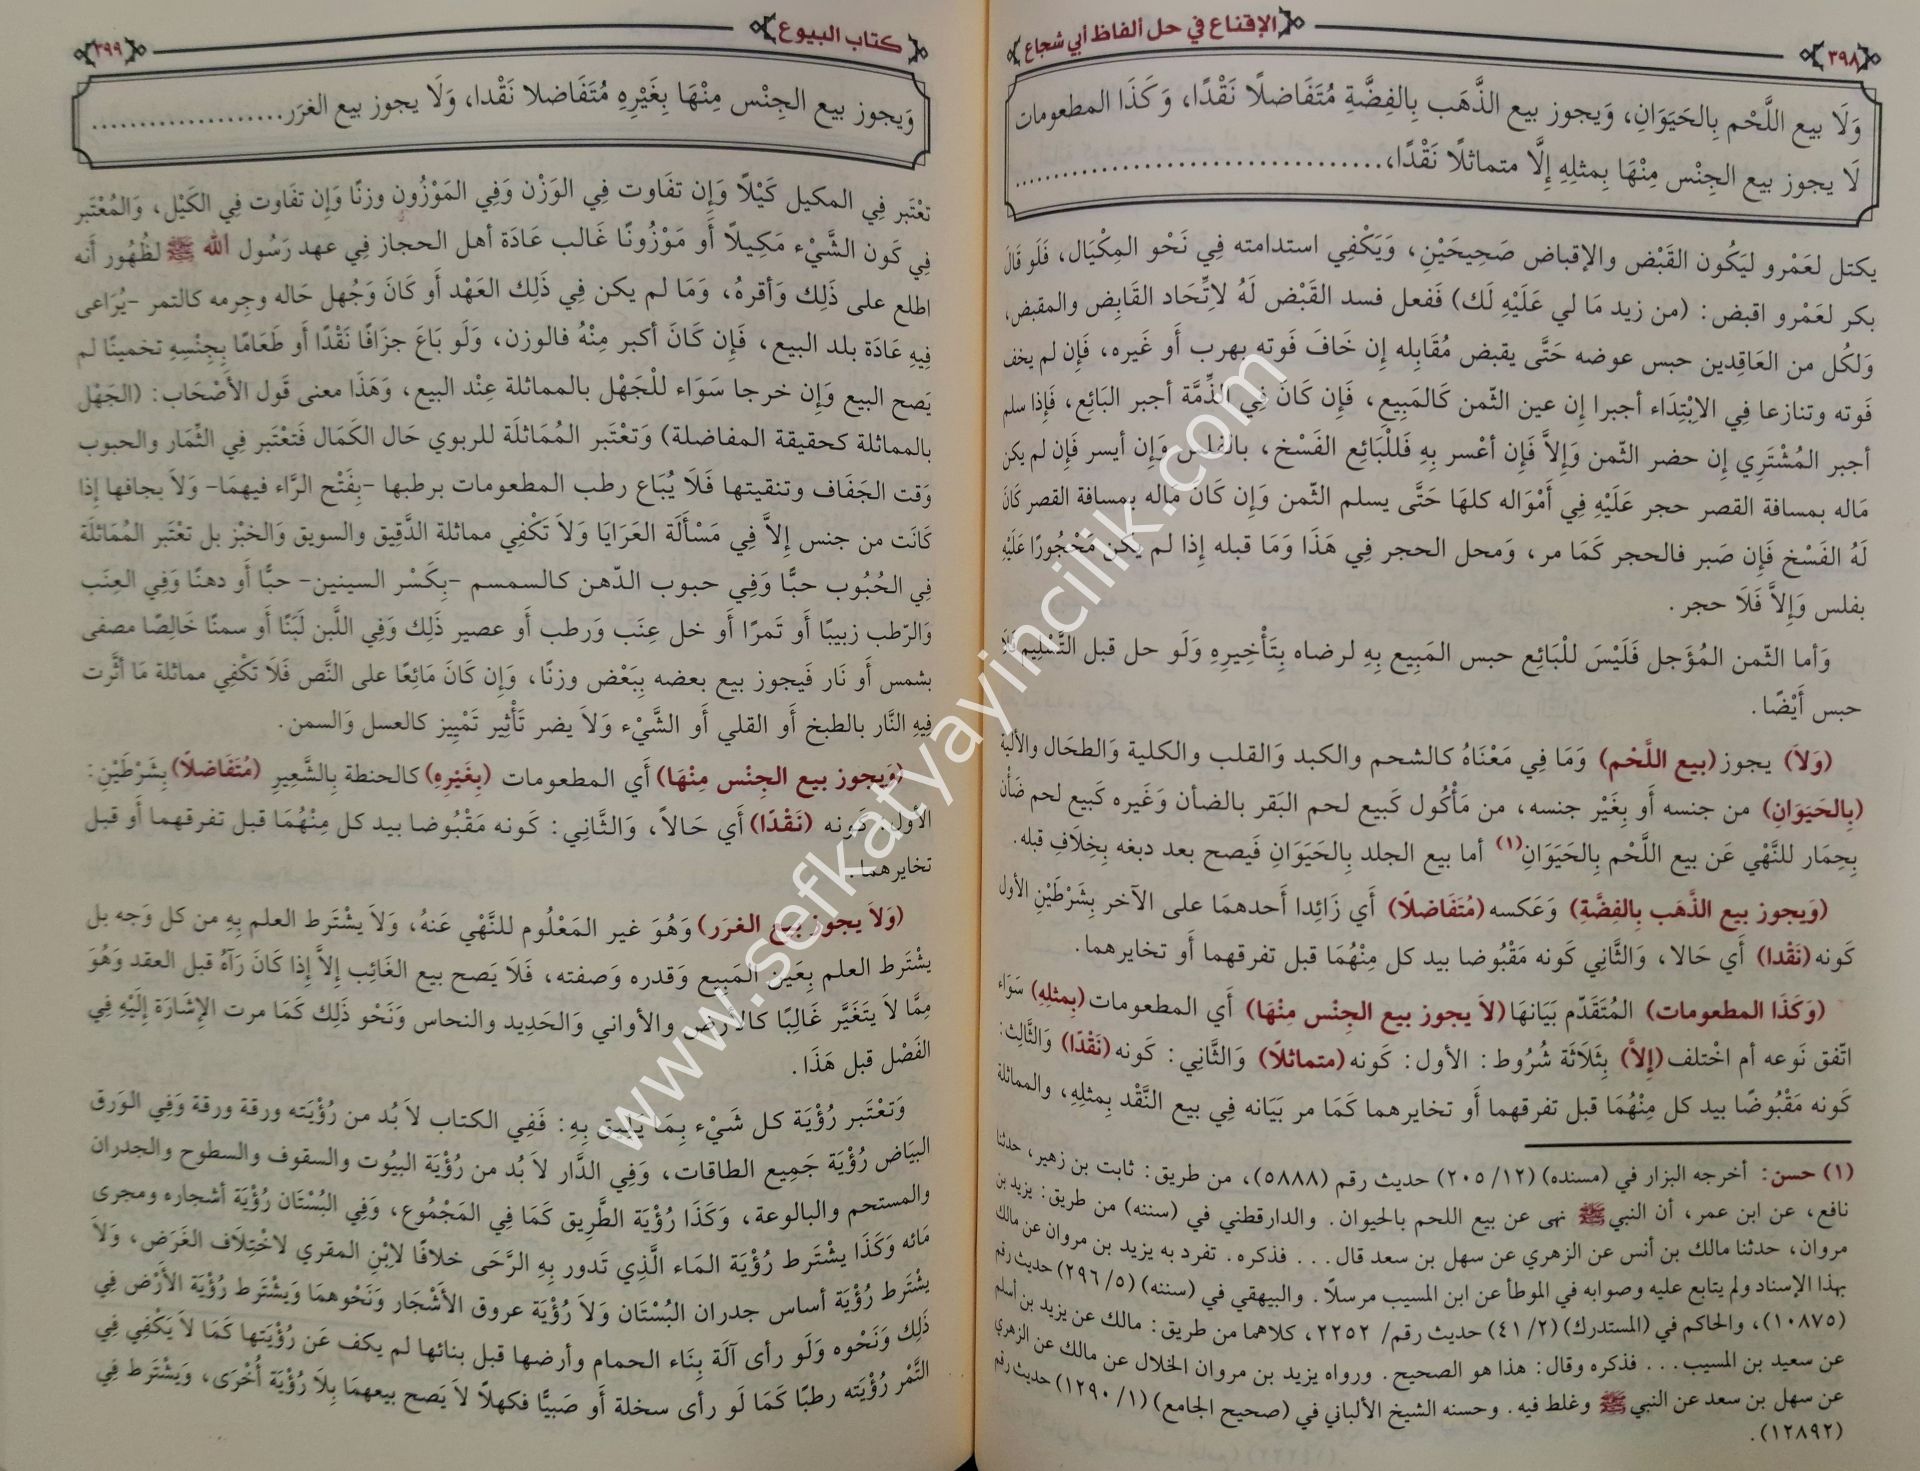 الإقناع في حل ألفاظ أبي شجاع
٣٩٨
وَلَا بيع اللَّحْم بِالحَيَوَانِ، وَيجوز بيع الذَّهَب بِالفِضَّةِ مُتَفَاضلًا نَقْدًا، وَكَذَا المطعومات
لَا يجوز بيع الجِنْس مِنْهَا بِمثلِهِ إِلَّا متماثلًا نَقْدًا،
يكتل لعَمْرو ليَكُون القَبْض والإقباض صَحِيحَيْنِ، وَيَكْفِي استدامته فِي نَحْو المِكْيَال، فَلَو قَالَ
بكر لعَمْرو اقبض: (من زيد مَا لي عَلَيْهِ لَك) فَفعل فسد القَبْض لَهُ لاتِّحَاد القَابِض والمقبض،
وَلكُل من العَاقِدين حبس عوضه حَتَّى يقبض مُقَابِله إن خَافَ فَوته بهرب أَو غَيره، فَإِن لم يخف
فَوته وتنازعا فِي الاِبْتِدَاء أجبرا إن عين الثّمن كَالمَبِيعِ، فَإِن كَانَ فِي الذِّمَّة أجبر البَائِع، فَإِذا سلم
أجبر المُشْتَرِي إن حضر الثّمن وَإِلاَّ فَإِن أعْسر بِهِ فَللْبَائِع الفَسْخ، بالفلس وَإِن أيسر فَإِن لم يكن
مَاله بمسافة القصر حجر عَلَيْهِ فِي أَمْوَاله كلهَا حَتَّى يسلم الثّمن وَإِن كَانَ مَاله بمسافة القصر كَانَ
لَهُ الفَسْخ فَإِن صَبر فالحجر كَمَا مر، وَمحل الحجر فِي هَذَا وَمَا قبله إذا لم يكن مَحْجُورًا عَلَيْهِ
بفلس وَإِلاَّ فَلَا حجر.
وَأما الثّمن المُؤَجل فَلَيْسَ للْبَائِع حبس المَبِيع بِهِ لرضاه بِتَأْخِيرِهِ وَلَو حل قبل التَّسْلِيم فَلَا
حبس أَيْضًا.
(وَلاَ) يجوز (بيع اللَّحْم) وَمَا فِي مَعْنَاهُ كالشحم والكبد وَالقلب والكلية وَالطحَال والألية
(بِالحَيَوَانِ) من جنسه أَو بِغَيْر جنسه، من مَأْكُول كَبيع لحم البَقر بالضأن وَغَيره كَبيع لحم ضَأْن
بِحِمَار للنَّهْي عَن بيع اللَّحْم بِالحَيَوَانِ(١) أما بيع الجلد بِالحَيَوَانِ فَيصح بعد دبغه بِخِلَافِ قبله.
(وَيجوز بيع الذَّهَب بِالفِضَّةِ) وَعَكسه (مُتَفَاضلاً) أَي زَائِدا أَحدهمَا على الآخر بِشَرْطَيْنِ الأول
كَونه (نَقْدا) أَي حَالا، وَالثَّانِي كَونه مَقْبُوضا بيد كل مِنْهُمَا قبل تفرقهما أَو تخايرهما.
(وَكَذَا المطعومات) المُتَقَدّم بَيَانهَا (لاَ يجوز بيع الجِنْس مِنْهَا) أَي المطعومات (بِمثلِهِ) سَوَاء
اتّفق نَوعه أم اخْتلف (إِلاَّ) بِثَلَاثَة شُرُوط: الأول: كَونه (متماثلاً) وَالثَّانِي: كَونه (نَقْدًا) وَالثَّالِث:
كَونه مَقْبُوضًا بيد كل مِنْهُمَا قبل تفرقهما أَو تخايرهما كَمَا مر بَيَانه فِي بيع النَّقْد بِمثلِهِ، والمماثلة
(١) حسن: أخرجه البزار في (مسنده) (١٢/ ٢٠٥) حديث رقم (٥٨٨٨)، من طريق: ثابت بن زهير، حدثنا
نافع، عن ابن عمر، أن النبي ﷺ نهى عن بيع اللحم بالحيوان. والدارقطني في (سننه) من طريق: يزيد بن
مروان، حدثنا مالك بن أنس عن الزهري عن سهل بن سعد قال... فذكره. تفرد به يزيد بن مروان عن مالك
بهذا الإسناد ولم يتابع عليه وصوابه في الموطأ عن ابن المسيب مرسلًا. والبيهقي في (سننه) (٥/ ٢٩٦) حديث رقم
(١٠٨٧٥)، والحاكم في (المستدرك) (٢/ ٤١) حديث رقم/ ٢٢٥٢، كلاهما من طريق: مالك عن يزيد بن أسلم
عن سعيد بن المسيب... فذكره وقال: هذا هو الصحيح. ورواه يزيد بن مروان الخلال عن مالك عن الزهري
عن سهل بن سعد عن النبي ﷺ وغلط فيه. وحسنه الشيخ الألباني في (صحيح الجامع) (١/ ١٢٩٠) حديث رقم
(١٢٨٩٢).
كتاب البيوع
٣٩٩
وَيجوز بيع الجِنْس مِنْهَا بِغَيْرِهِ مُتَفَاضلا نَقْدا، وَلَا يجوز بيع الغرَر
تعْتَبر فِي المكيل كَيْلاً وَإِن تفَاوت فِي الوَزْن وَفِي المَوْزُون وزنًا وَإِن تفَاوت فِي الكَيْل، وَالمُعْتَبر
فِي كَون الشَّيْء مَكِيلاً أَو مَوْزُونًا غَالب عَادَة أهل الحجاز فِي عهد رَسُول الله ﷺ لظُهُور أَنه
اطلع على ذَلِك وَأقرهُ، وَمَا لم يكن فِي ذَلِك العَهْد أَو كَانَ وَجُهل حَاله وجِرمه كالتمر -يُرَاعى
فِيهِ عَادَة بلد البيع، فَإِن كَانَ أكبر مِنْهُ فالوزن، وَلَو بَاعَ جزَافًا نَقْدًا أَو طَعَامًا بِجِنْسِهِ تخمينًا لم
يَصح البيع وَإِن خرجا سَوَاء للْجَهْل بالمماثلة عِنْد البيع، وَهَذَا معنى قَول الأَصْحَاب: (الجَهْل
بالمماثلة كحقيقة المفاضلة) وَتعْتَبر المُمَاثلَة للربوي حَال الكَمَال فَتعْتَبر فِي الثِّمَار والحبوب
وَقت الجَفَاف وتنقيتها فَلَا يُبَاع رطب المطعومات برطبها -بِفَتْح الرَّاء فيهمَا- وَلَا بجافها إذا
كَانَت من جنس إِلاَّ فِي مَسْأَلَة العَرَايَا وَلَا تَكْفِي مماثلة الدَّقِيق والسويق وَالخبْز بل تعْتَبر المُمَاثلَة
فِي الحُبُوب حبًّا وَفِي حبوب الدّهن كالسمسم -بِكَسْر السينين- حبًّا أَو دهنًا وَفِي العِنَب
وَالرّطب زبيبًا أَو تَمرًا أَو خل عِنَب وَرطب أَو عصير ذَلِك وَفِي اللَّبن لَبَنًا أَو سمنًا خَالِصًا مصفى
بشمس أَو نَار فَيجوز بيع بعضه بِبَعْض وزنًا، وَإِن كَانَ مَائِعًا على النَّص فَلَا تَكْفِي مماثلة مَا أثَّرت
فِيهِ النَّار بالطبخ أَو القلي أَو الشَّيْء وَلَا يضر تَأْثِير تَمْيِيز كالعسل وَالسمن.
(وَيجوز بيع الجِنْس مِنْهَا) أَي المطعومات (بِغَيْرِهِ) كالحنطة بِالشَّعِيرِ (مُتَفَاضلاً) بِشَرْطَيْنِ:
الأول: كَونه (نَقْدًا) أَي حَالاً، وَالثَّانِي: كَونه مَقْبُوضا بيد كل مِنْهُمَا قبل تفرقهما أَو قبل
تخايرهما.
(وَلاَ يجوز بيع الغرَر) وَهُوَ غير المَعْلُوم للنَّهْي عَنهُ، وَلاَ يشْتَرط العلم بِهِ من كل وَجه بل
يشْتَرط العلم بِعَين المَبِيع وَقدره وَصفته، فَلَا يَصح بيع الغَائِب إِلاَّ إذا كَانَ رَآهُ قبل العقد وَهُوَ
مِمَّا لاَ يتَغَيَّر غَالِبًا كالأرض والأواني وَالحَدِيد والنحاس وَنَحْو ذَلِك كَمَا مرت الإِشَارَة إِلَيْهِ فِي
الفَصْل قبل هَذَا.
وَتعْتَبر رُؤْيَة كل شَيْء بِمَا يَلِيق بِهِ: فَفِي الكتاب لاَ بُد من رُؤْيَته ورقة ورقة وَفِي الوَرق
البيَاض رُؤْيَة جَمِيع الطاقات، وَفِي الدَّار لاَ بُد من رُؤْيَة البيُوت والسقوف والسطوح والجدران
والمستحم والبالوعة، وَكَذَا رُؤْيَة الطَّرِيق كَمَا فِي المَجْمُوع، وَفِي البُسْتَان رُؤْيَة أشجاره ومجرى
مَائه وَكَذَا يشْتَرط رُؤْيَة المَاء الَّذِي تَدور بِهِ الرَّحَى خلافًا لاِبْنِ المقري لاخْتِلَاف الغَرَض، وَلاَ
يشْتَرط رُؤْيَة أساس جدران البُسْتَان وَلَا رُؤْيَة عروق الأَشْجَار وَنَحْوهمَا وَيشْتَرط رُؤْيَة الأَرْض فِي
ذَلِك وَنَحْوه وَلَو رأى آلَة بِنَاء الحمام وأرضها قبل بنائها لم يكف عَن رُؤْيَتها كَمَا لاَ يَكْفِي فِي
التَّمْر رُؤْيَته رطبًا كَمَا لَو رأى سخلة أَو صَبيًّا فكهلاً لاَ يَصح بيعهمَا بِلاَ رُؤْيَة أُخْرَى، وَيشْتَرط فِي
www.sefkatyayincilik.com